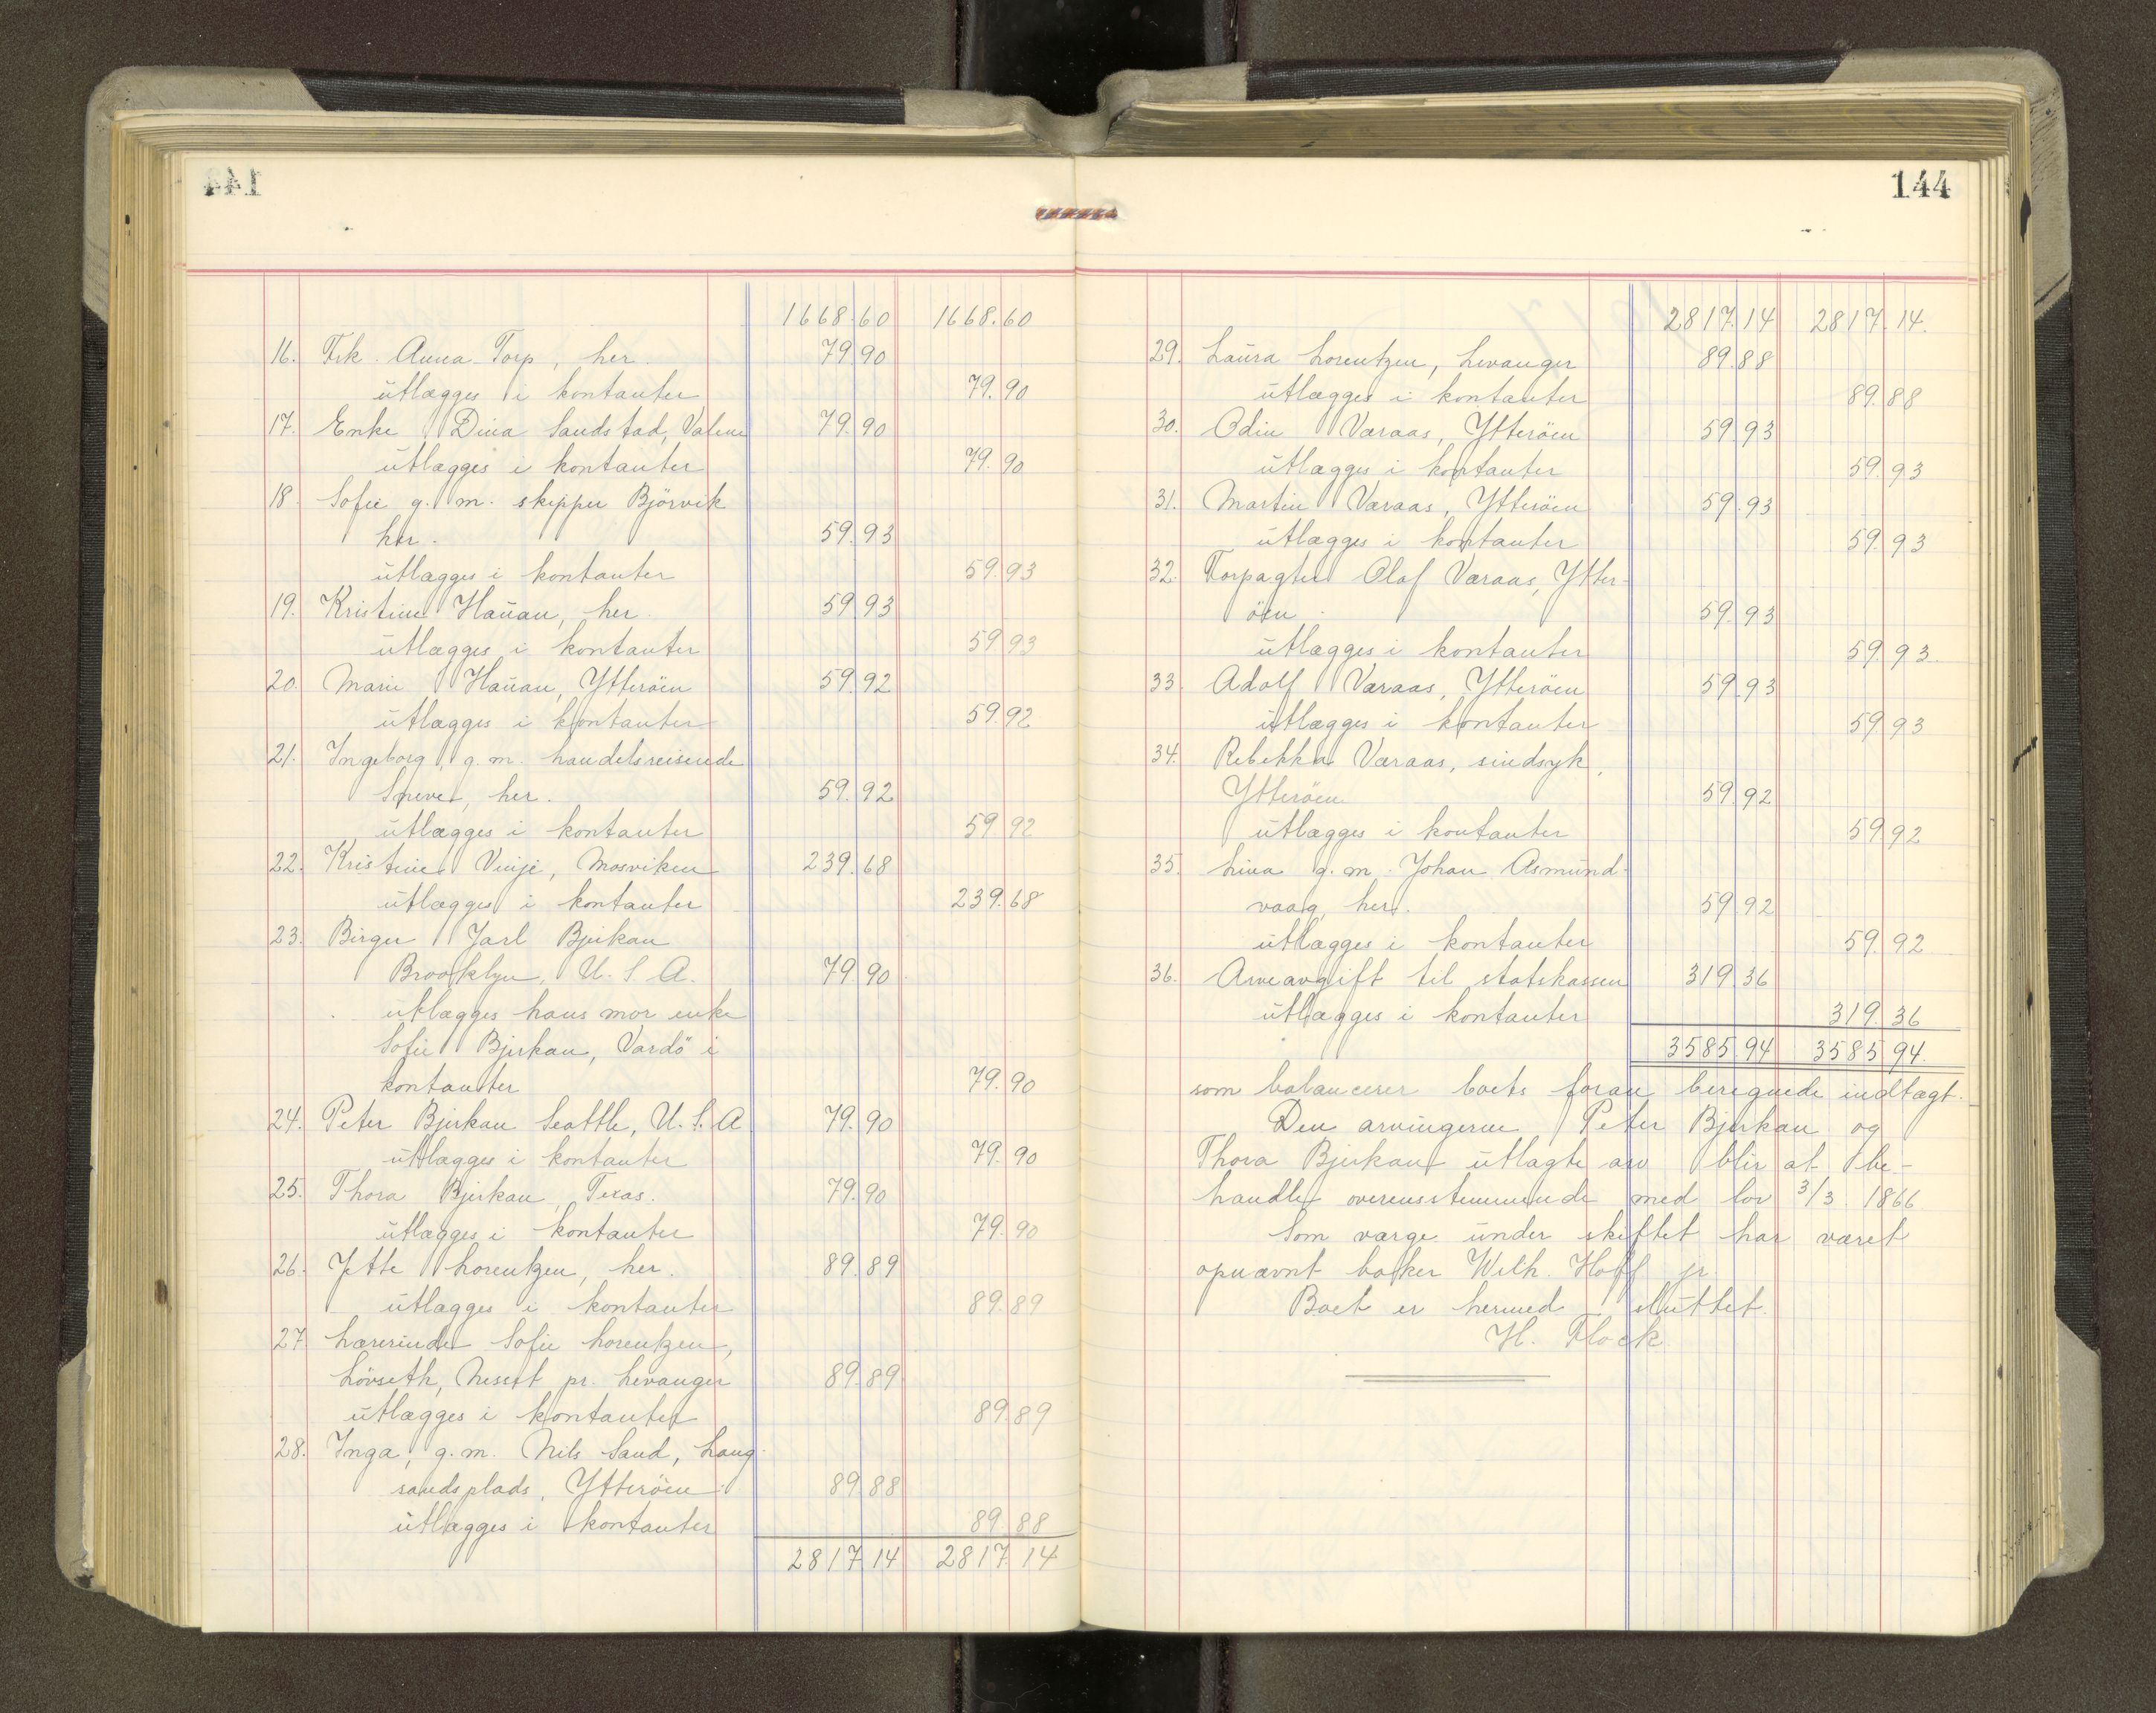 144
1668.60 1668.60
16. Frk. Anna Torp, her. 79.90
utlægges i kontanter 79.90
17. Enke Dina Sandstad, Valene 79.90
utlægges i kontanter 79.90
18. Sofie g. m. skipper Björvik
her. 59.93
utlægges i kontanter 59.93
19. Kristine Hauan, her. 59.93
utlægges i kontanter 59.93
20. Marie Hauan, Ytteröen 59.92
utlægges i kontanter 59.92
21. Ingeborg g. m. handelsreisende
her. 59.92
utlægges i kontanter 59.92
22. Kristine Vinje, Mosviken 239.68
utlægges i kontanter 239.68
23. Birger Jarl Bjerkan
Brooklyn, U. S. A. 79.90
utlægges hans mor enke
Sofie Bjerkan, Vardö i
kontanter 79.90
24. Peter Bjerkan Seattle, U. S. A 79.90
utlægges i kontanter 79.90
25. Thora Bjerkan, Texas. 79.90
utlægges i kontanter 79.90
26. Jette Lorentzen, her. 89.89
utlægges i kontanter 89.89
27. Lærerinde Sofie Lorentzen,
Lövseth, Nesset pr. Levanger 89.89
utlægges i kontanter 89.89
28. Inga, g. m. Nils Sand, Haug-
sandsplads, Ytteröen 89.88
utlægges i kontanter 89.88
2817.14 2817.14
144
2817.14 2817.14.
29. Laura Lorentzen, Levanger 89.88
utlægges i kontanter 89.88
30. Odin Væraas, Ytteröen 59.93
utlægges i kontanter 59.93
31. Martin Væraas, Ytteröen 59.93
utlægges i kontanter 59.93
32. Forpagter Olaf Væraas, Ytter-
öen. 59.93
utlægges i kontanter 59.93.
33. Adolf Væraas, Ytteröen 59.93
utlægges i kontanter 59.93
34. Rebekka Væraas, sindsyk,
Ytteröen 59.92
utlægges i kontanter 59.92
35. Lina g. m. Johan Asmund-
vaag, her. 59.92
utlægges i kontanter 59.92
36. Arveavgift til statskassen 319.36
utlægges i kontanter 319.36
3585.94 3585.94.
som balancerer boets foran beregnede indtægt.
Den arvingerne Peter Bjerkan og
Thora Bjerkan utlagte arv blir at be-
handle overensstemmende med lov 3/3 1866
Som værge under skiftet har været
opnævnt baker Wilh. Hoff jr.
Boet er hermed sluttet.
H. Flock.